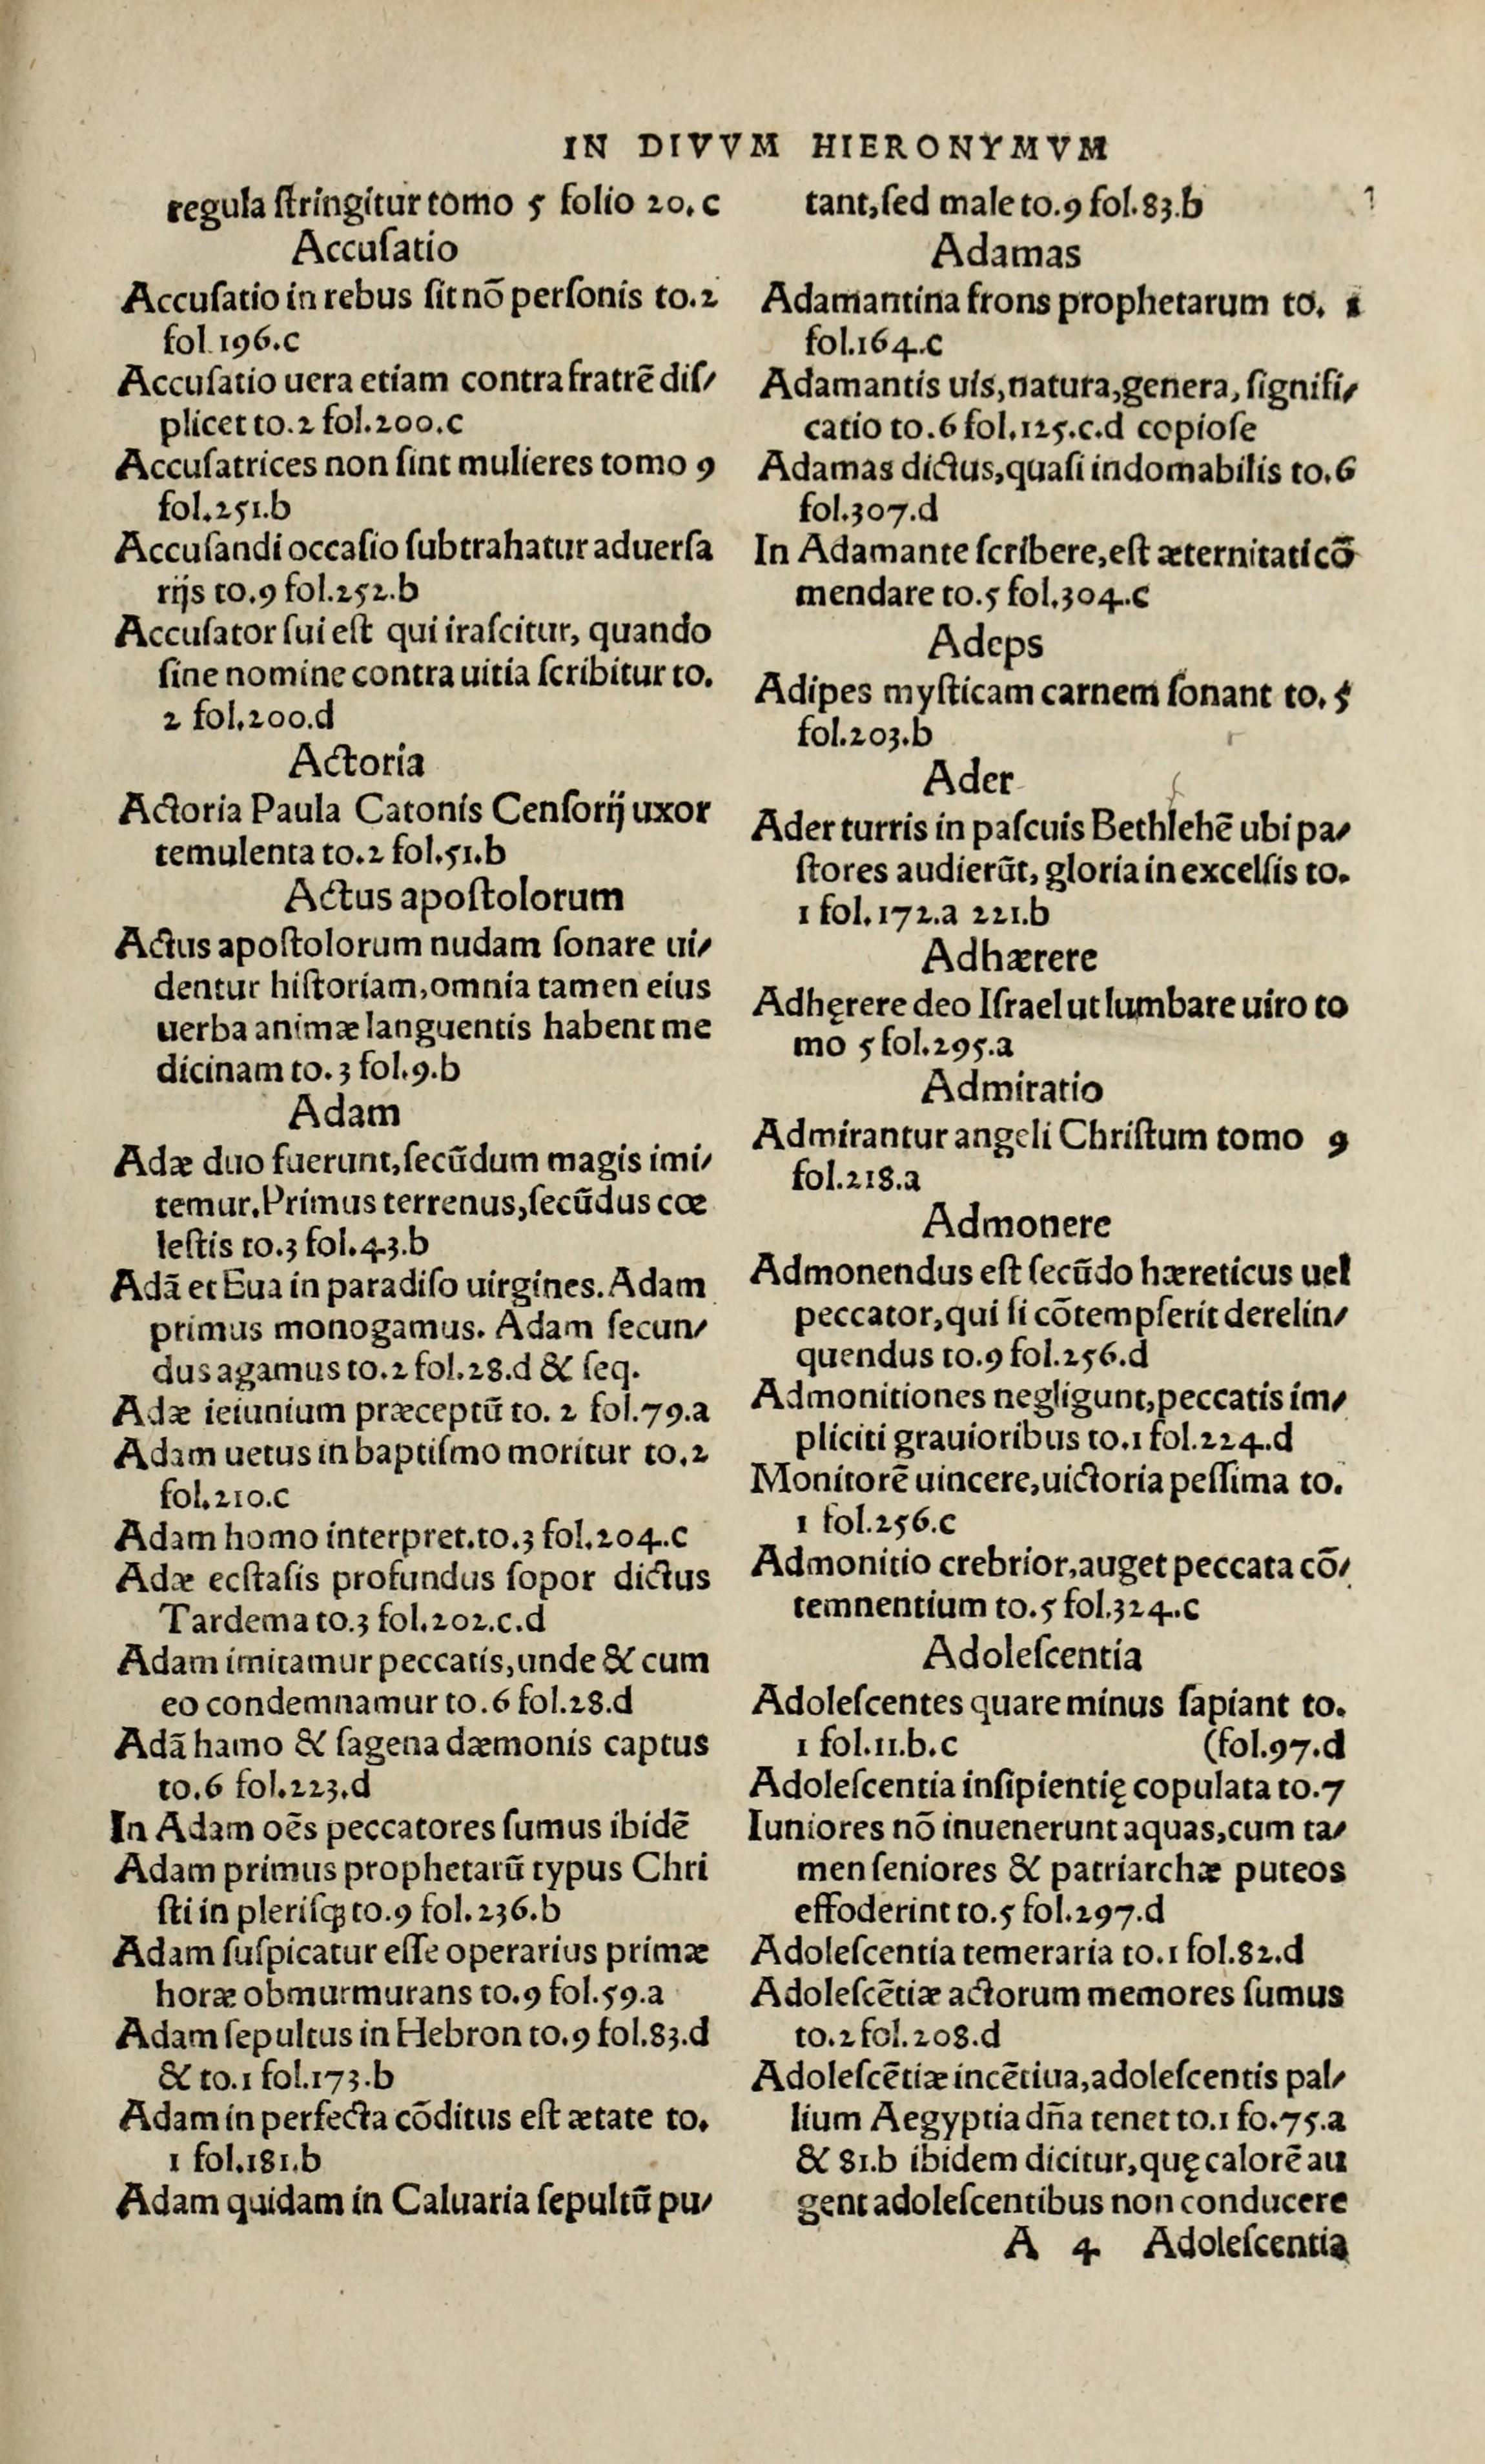 IN DIVVM HIERONYMVM
regula ſtringitur tomo 5 folio 20.c
Accuſatio
Accuſatio in rebus ſit nō perſonis to.2
fol.196.c
Accuſatio uera etiam contra fratrē diſ/
plicet to.2 fol.200.c
Accuſatrices non ſint mulieres tomo 9
fol.251.b
Accuſandi occaſio ſubtrahatur aduerſa
rijs to.9 fol.252.b
Accuſator ſui eſt qui iraſcitur, quando
ſine nomine contra uitia ſcribitur to.
2 fol.200.d
Actoria
Actoria Paula Catonis Cenſorij uxor
temulenta to.2 fol.51.b
Actus apoſtolorum
Actus apoſtolorum nudam ſonare ui/
dentur hiſtoriam,omnia tamen eius
uerba animæ languentis habent me
dicinam to.3 fol.9.b
Adam
Adæ duo fuerunt,ſecūdum magis imi/
temur.Primus terrenus,ſecūdus cœ
leſtis to.3 fol.43.b
Adā et Eua in paradiſo uirgines.Adam
primus monogamus. Adam ſecun/
dus agamus to.2 fol.28.d & ſeq.
Adæ ieiunium præceptū to. 2 fol.79.a
Adam uetus in baptiſmo moritur to.2
fol.210.c
Adam homo interpret.to.3 fol.204.c
Adæ ecſtaſis profundus ſopor dictus
Tardema to.3 fol.202.c.d
Adam imitamur peccatis,unde & cum
eo condemnamur to.6 fol.28.d
Adā hamo & ſagena dæmonis captus
to.6 fol.223.d
In Adam oēs peccatores ſumus ibidē
Adam primus prophetarū typus Chri
ſti in pleriſqꝫ to.9 fol.236.b
Adam ſuſpicatur eſſe operarius primæ
horæ obmurmurans to.9 fol.59.a
Adam ſepultus in Hebron to.9 fol.83.d
& to.1 fol.173.b
Adam in perfecta cōditus eſt ætate to.
1 fol.181.b
Adam quidam in Caluaria ſepultū pu/
tant,ſed male to.9 fol.83.b
Adamas
Adamantina frons prophetarum to. 1
fol.164.c
Adamantis uis,natura,genera, ſignifi/
catio to.6 fol.125.c.d copioſe
Adamas dictus,quaſi indomabilis to.6
fol.307.d
In Adamante ſcribere,eſt æternitati cō
mendare to.5 fol.304.c
Adeps
Adipes myſticam carnem ſonant to.5
fol.203.b
Ader
Ader turris in paſcuis Bethlehē ubi pa/
ſtores audierūt, gloria in excelſis to.
1 fol. 172.a 221.b
Adhærere
Adhęrere deo Iſrael ut lumbare uiro to
mo 5 fol.295.a
Admiratio
Admirantur angeli Chriſtum tomo 9
fol.218.a
Admonere
Admonendus eſt ſecūdo hæreticus uel
peccator,qui ſi cōtempſerit derelin/
quendus to.9 fol.256.d
Admonitiones negligunt,peccatis im/
pliciti grauioribus to.1 fol.224.d
Monitorē uincere,uictoria peſſima to.
1 fol.256.c
Admonitio crebrior,auget peccata cō/
temnentium to.5 fol.324.c
Adoleſcentia
Adoleſcentes quare minus ſapiant to.
1 fol.11.b.c (fol.97.d
Adoleſcentia inſipientię copulata to.7
Iuniores nō inuenerunt aquas,cum ta/
men ſeniores & patriarchæ puteos
effoderint to.5 fol.297.d
Adoleſcentia temeraria to.1 fol.82.d
Adoleſcētiæ actorum memores ſumus
to.2 fol.208.d
Adoleſcētiæ incētiua,adoleſcentis pal/
lium Aegyptia dn̄a tenet to.1 fo.75.a
& 81.b ibidem dicitur,quę calorē au
gent adoleſcentibus non conducere
A 4 Adoleſcentia